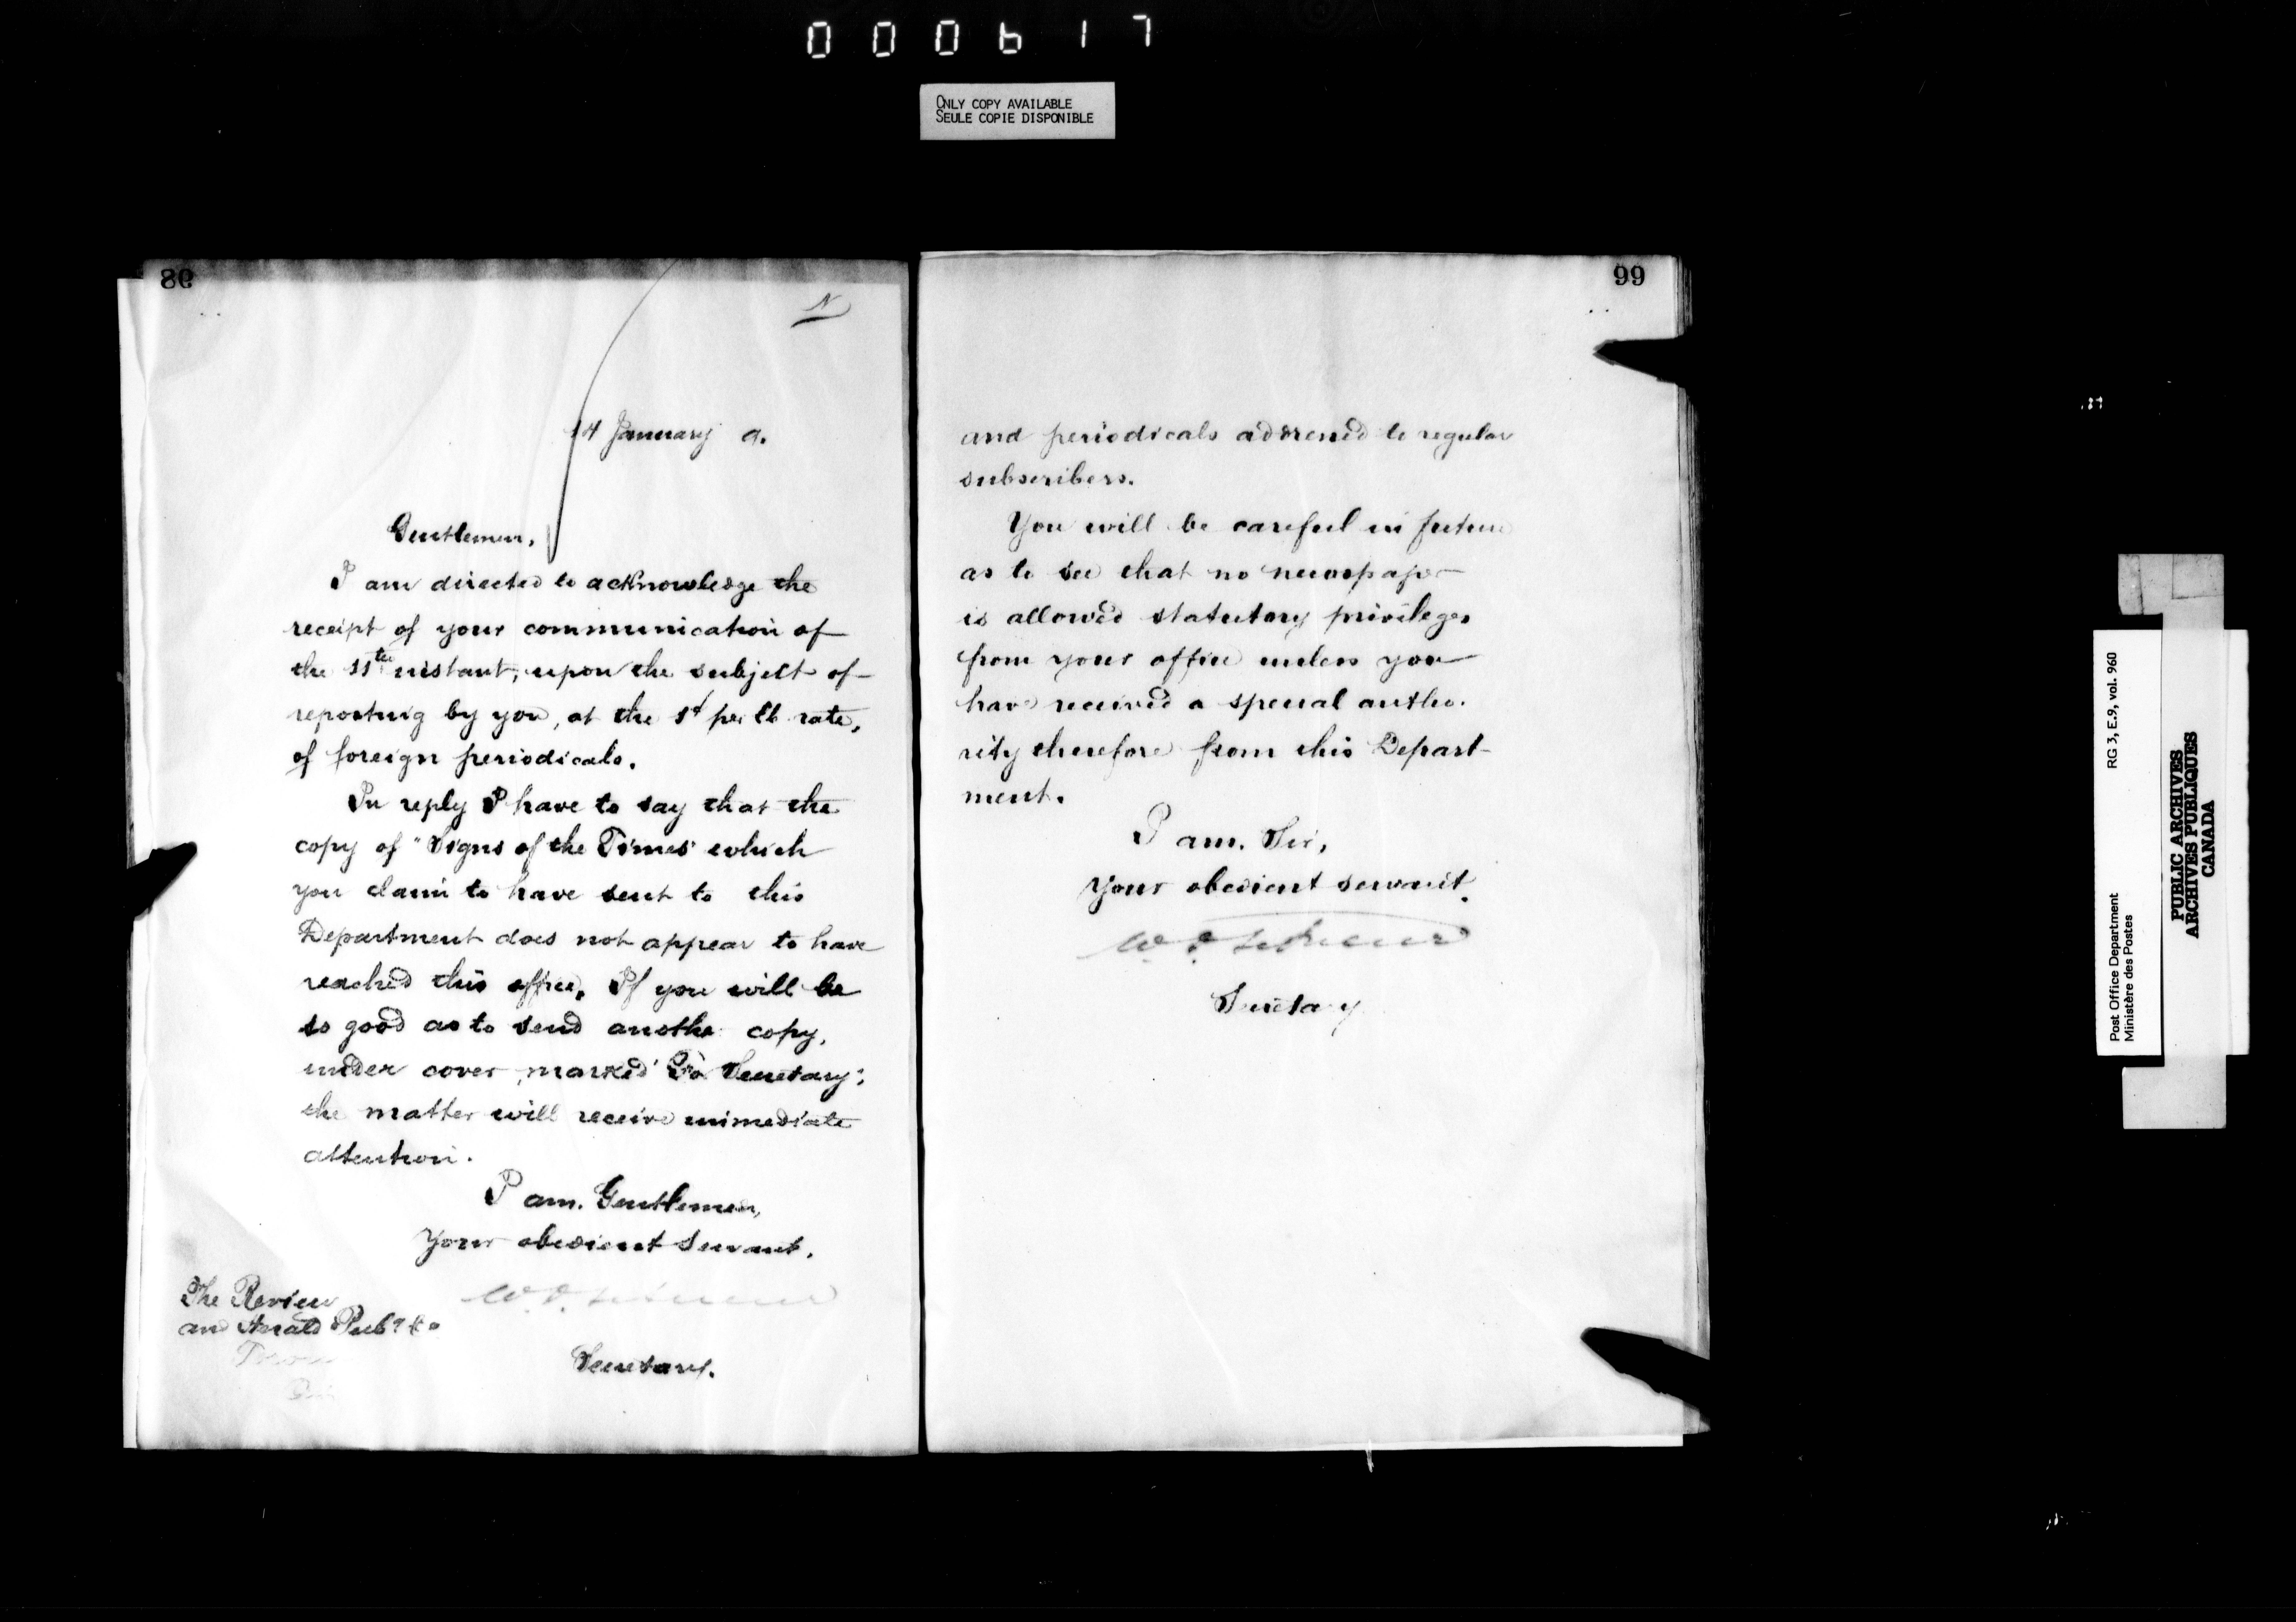 000617
ONLY COPY AVAILABLE
SEULE COPIE DISPONIBLE
98
N
14 January 9.
Gentlemen,
I am directed to acknowledge the
receipt of your communication of
the 11th instant, upon the subject of
reposting by you, at the 1¢ per lb rate,
of foreign periodicals.
In reply I have to say that the
copy of "Signs of the Times" which
you claim to have sent to this
Department does not appear to have
reached this office. If you will be
so good as to send another copy,
under cover, marked "For Secretary",
the matter will receive immediate
attention.
I am. Gentlemen,
Your obedient servant.
The Review
and Herald Pub. Co
Secretary.
99
and periodicals addressed to regular
subscribers.
You will be careful in future
as to see that no newspaper
is allowed statutory privileges
from your office unless you
have received a special autho-
rity therefore from this Depart-
ment.
I am. Sir,
Your obedient servant.
Secretary
Post Office Department
Ministère des Postes
RG 3, E.9, vol. 960
PUBLIC ARCHIVES
ARCHIVES PUBLIQUES
CANADA